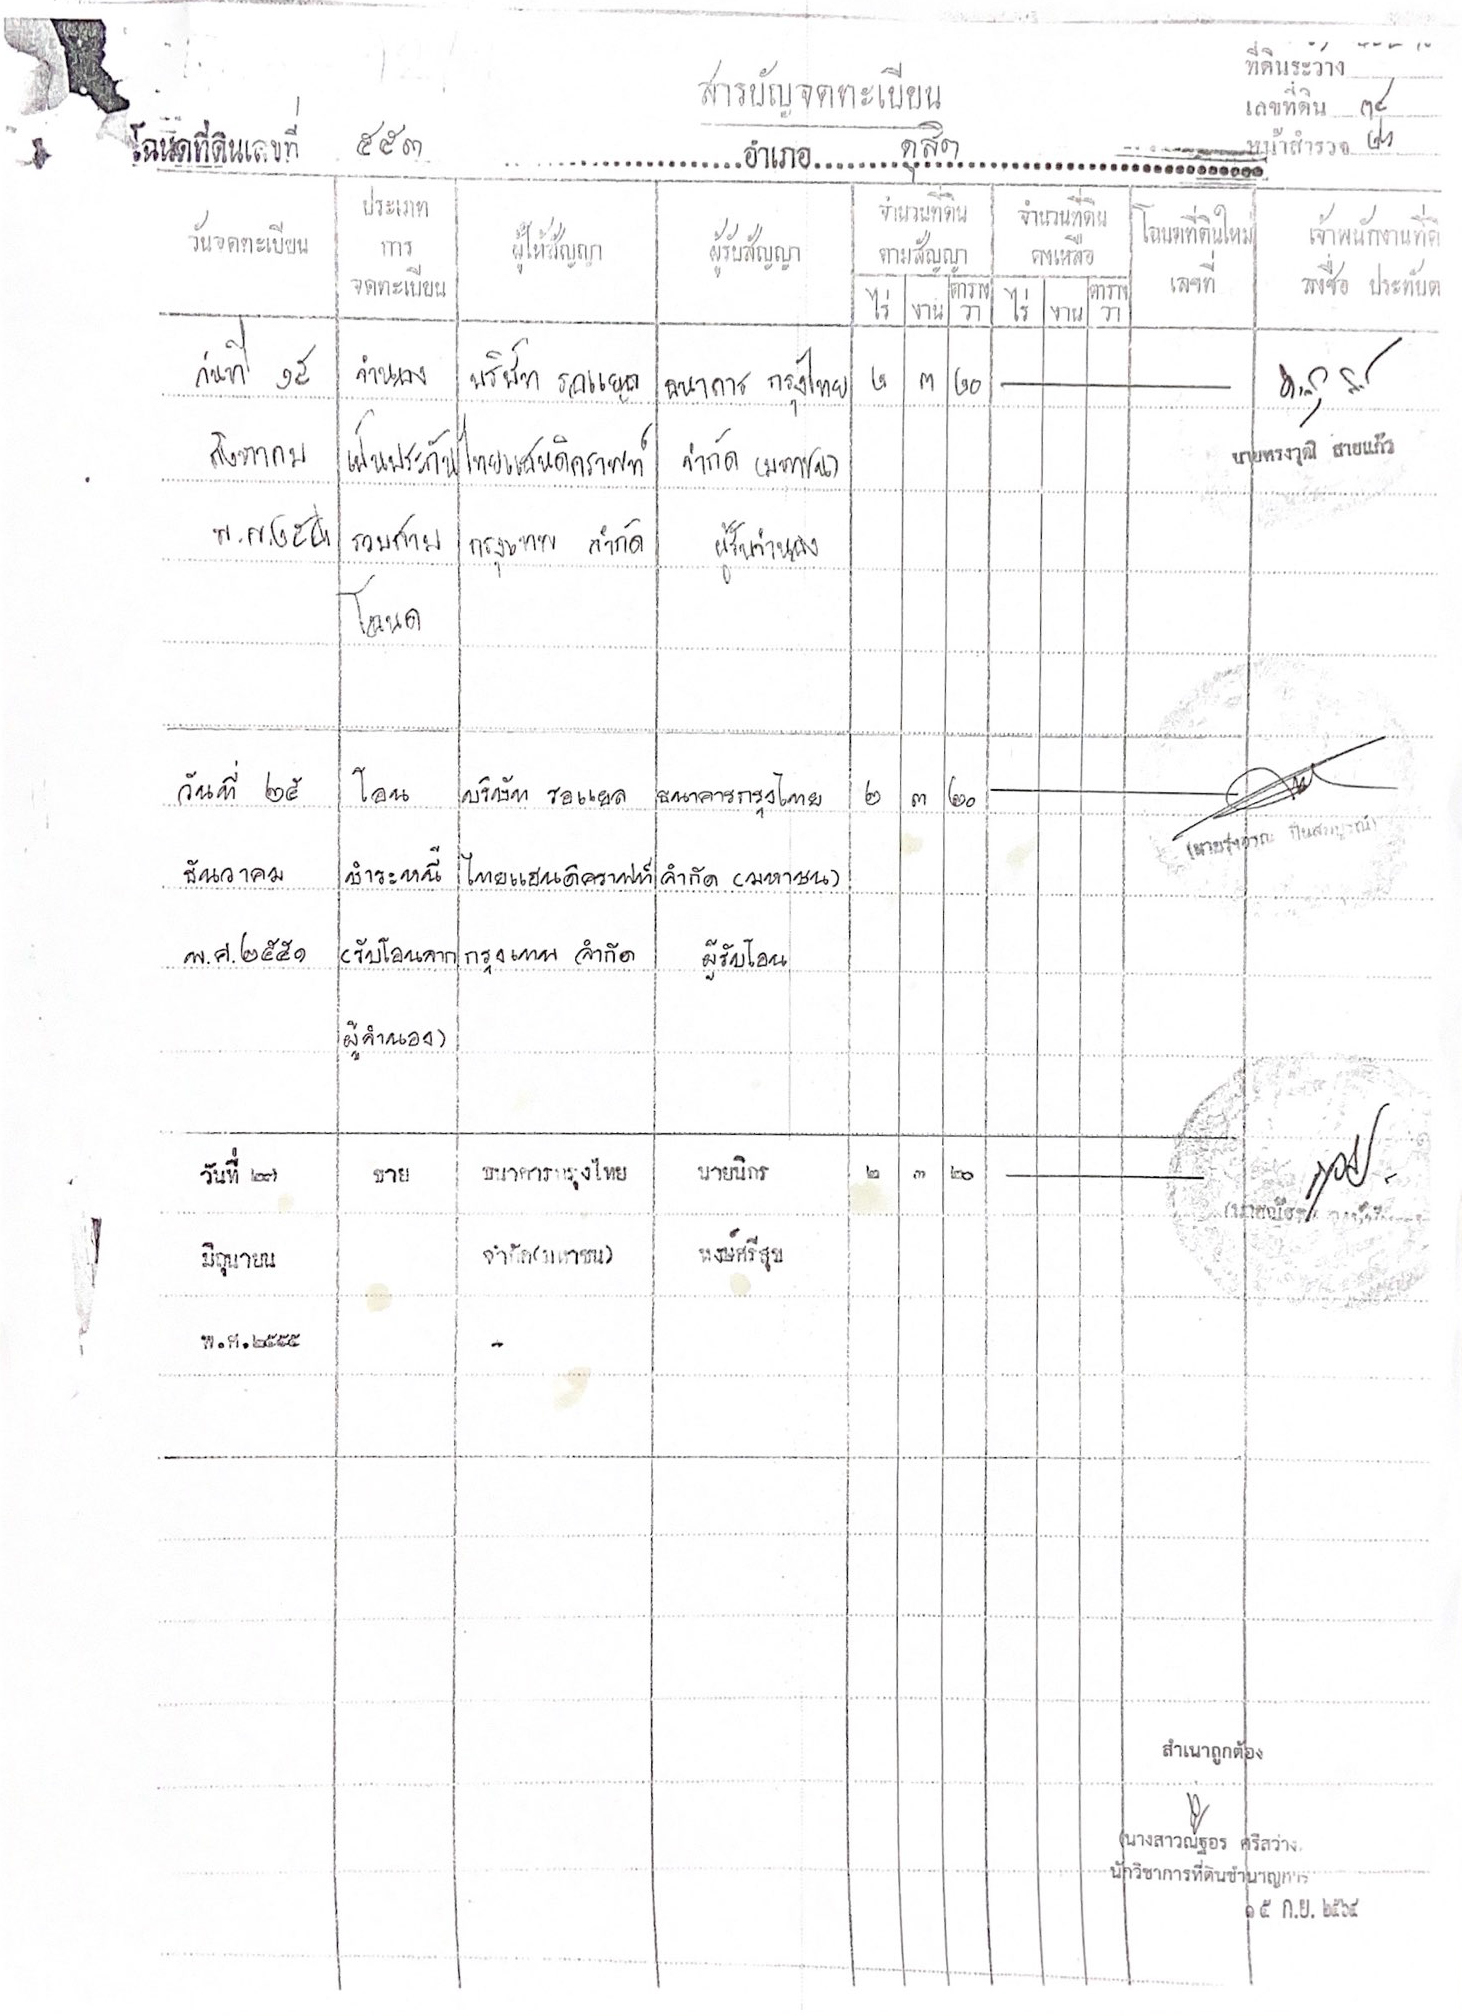 สารบัญจดทะเบียน
ที่ดินระวาง
เลขที่ดิน ๓๔
หน้าสำรวจ
โฉนดที่ดินเลขที่ ๕๕๓ อำเภอ ดุสิต
วันจดทะเบียน ประเภทการจดทะเบียน ผู้ให้สัญญา ผู้รับสัญญา จำนวนที่ดินตามสัญญา จำนวนที่ดินคงเหลือ โฉนดที่ดินใหม่เลขที่ เจ้าพนักงานที่ดิ ลงชื่อ ประทับต
ไร่ งาน ตารางวา ไร่ งาน ตารางวา
วันที่ ๑๕ จำนอง บริษัท รอแยล ธนาคาร กรุงไทย ๒ ๓ ๒๐
สิงหาคม เป็นประกัน ไทยแฮนดิคราฟท์ จำกัด (มหาชน) นายทรงวุฒิ สายแก้ว
รวมสาม กรุงเทพ จำกัด ผู้รับจำนอง
โฉนด
วันที่ ๒๕ โอน บริษัท รอแยล ธนาคารกรุงไทย ๒ ๓ ๒๐
ธันวาคม ชำระหนี้ ไทยแฮนดิคราฟท์ จำกัด (มหาชน)
พ.ศ.๒๕๕๑ (รับโอนจาก กรุงเทพ จำกัด ผู้รับโอน
ผู้จำนอง)
วันที่ ๒๗ ขาย ธนาคารกรุงไทย นายนิกร ๒ ๓ ๒๐
มิถุนายน จำกัด(มหาชน) พงษ์ศรีสุข
พ.ศ.๒๕๕๕ -
สำเนาถูกต้อง
(นางสาวณัฐอร ศรีสว่าง
นักวิชาการที่ดินชำนาญการ
๑๕ ก.ย. ๒๕๖๔